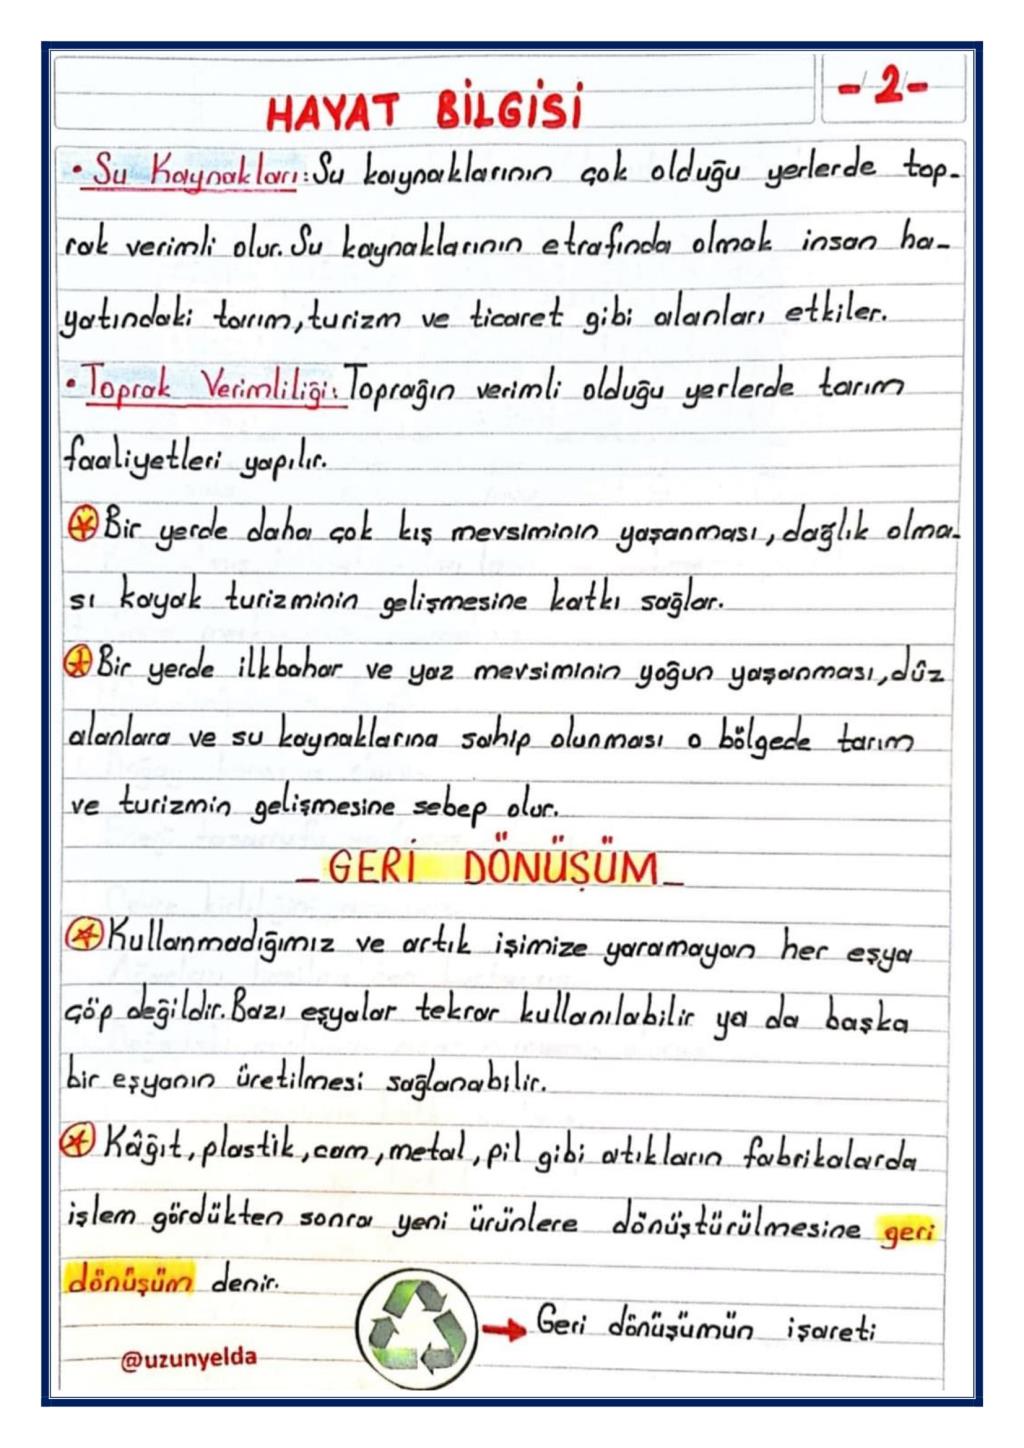 -2-
HAYAT BİLGİSİ
• Su Kaynakları: Su kaynaklarının çok olduğu yerlerde top-
rak verimli olur. Su kaynaklarının etrafında olmak insan ha-
yatındaki tarım, turizm ve ticaret gibi alanları etkiler.
• Toprak Verimliliği: Toprağın verimli olduğu yerlerde tarım
faaliyetleri yapılır.
Bir yerde daha çok kış mevsiminin yaşanması, dağlık olma-
sı kayak turizminin gelişmesine katkı sağlar.
Bir yerde ilkbahar ve yaz mevsiminin yoğun yaşanması, düz
alanlara ve su kaynaklarına sahip olunması o bölgede tarım
ve turizmin gelişmesine sebep olur.
_GERİ DÖNÜŞÜM_
Kullanmadığımız ve artık işimize yaramayan her eşya
çöp değildir. Bazı eşyalar tekrar kullanılabilir ya da başka
bir eşyanın üretilmesi sağlanabilir.
Kâğıt, plastik, cam, metal, pil gibi atıkların fabrikalarda
işlem gördükten sonra yeni ürünlere dönüştürülmesine geri
dönüşüm denir.
Geri dönüşümün işareti
@uzunyelda